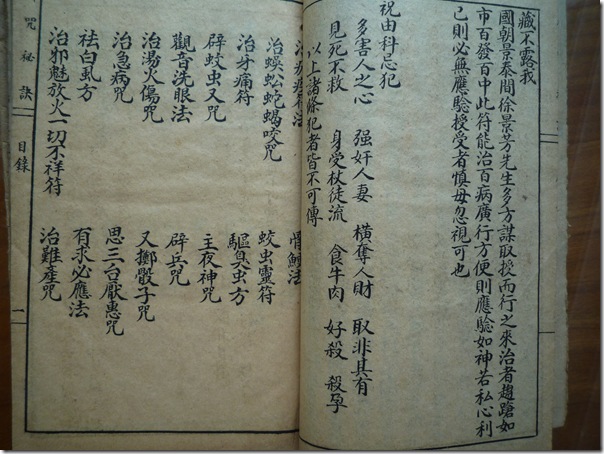 藏不露我
國朝景泰間徐景芳先生多方謀取授而行之來治者趨蹌如
市百發百中此符能治百病廣行方便則應驗如神若私心利
己則必無應驗授受者慎毋忽視可也
祝由科忌犯
多害人之心 强奸人妻 橫奪人財 取非其有
見死不救 身受杖徒流 食牛肉 好殺 殺孕
以上諸條犯者皆不可傳
骨鯁法
治蜈蚣蛇蝎咬咒 蛟虫靈符
治牙痛符 驅臭虫方
辟蛟虫又咒 主夜神咒
觀音洗眼法 辟兵咒
治湯火傷咒 又擲骰子咒
治急病咒 思三台厭惠咒
祛白虱方 有求必應法
治邪魅放火一切不祥符 治難產咒
咒秘訣 目錄 一